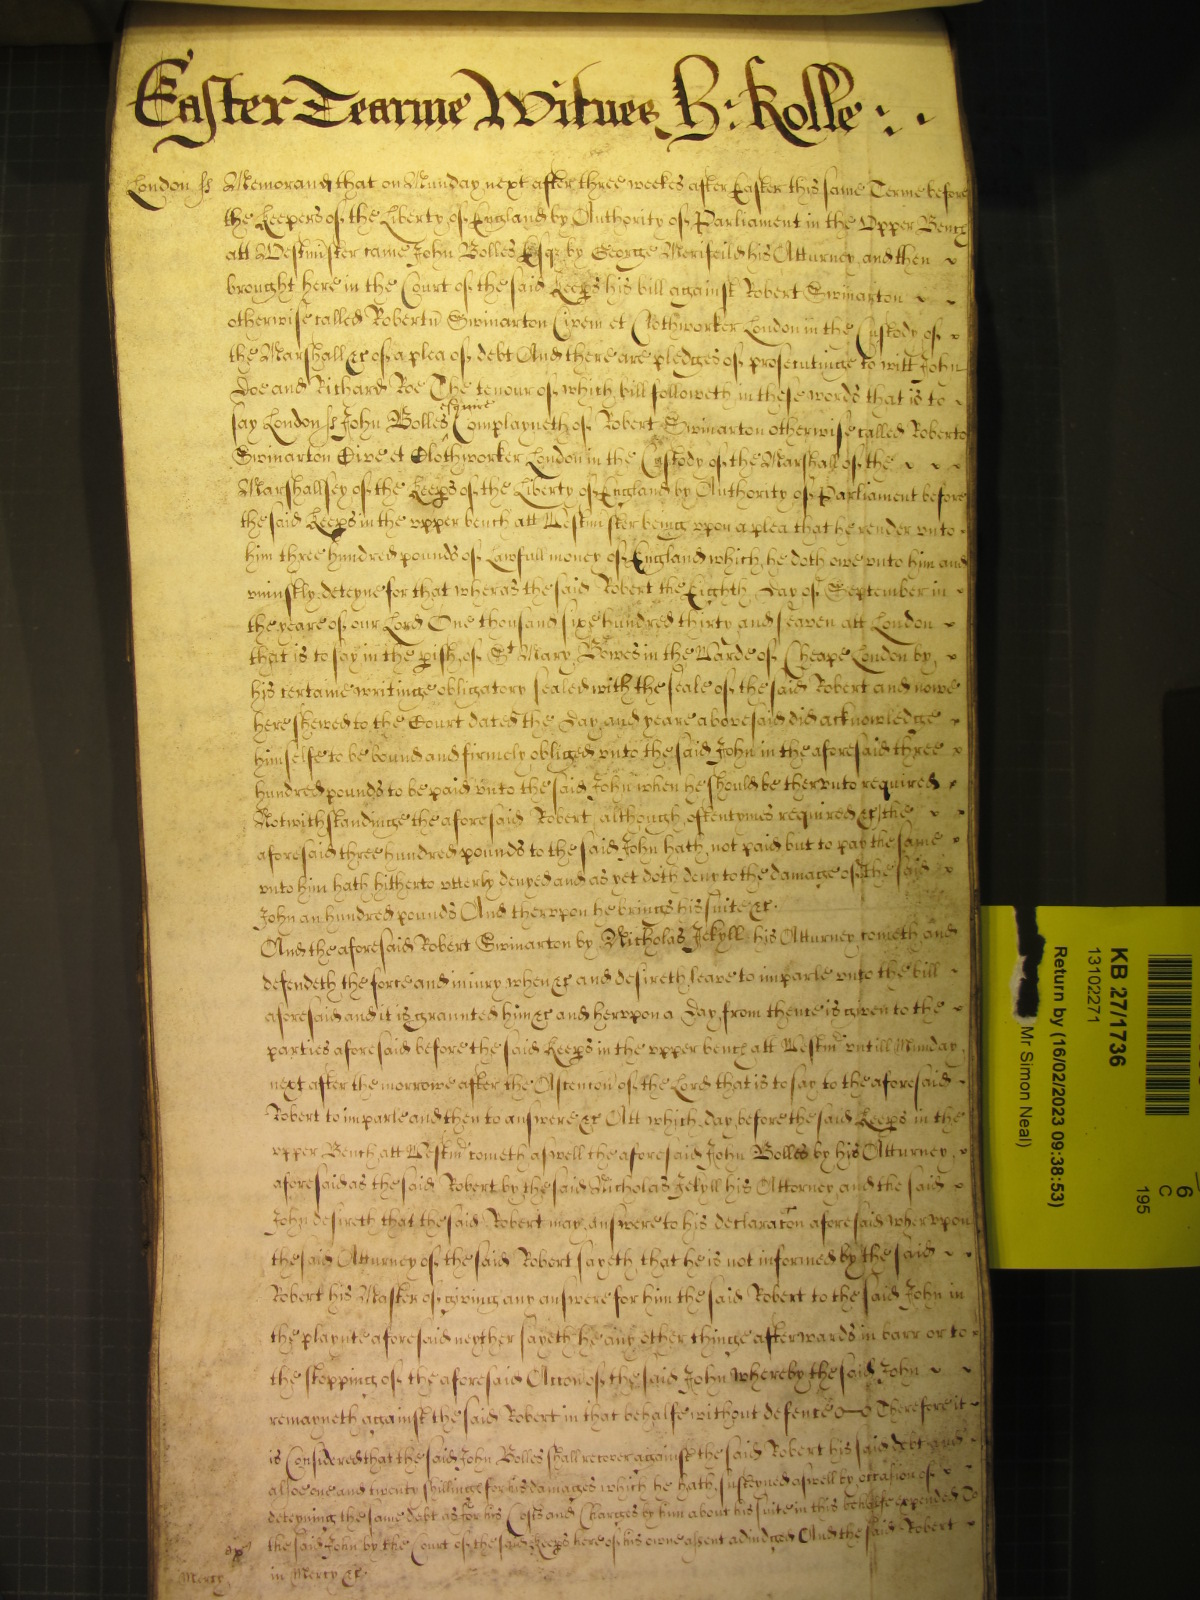 Easter Tearme Witnes H: Rolle
London ss Memorand that on Munday next after three weekes after Easter this same Terme before
the Keepers of the Liberty of England by Authority of Parliament in the Upper Bench
att Westminster came John Bolles Esqr by George Merifeild his Atturney and then
brought here in the Court of the said Keeps his bill against Robert Swinarton
otherwise called Robertu Swinarton Civem et Clothworker London in the Custody of
the Marshall &c of a plea of debt And there are pledges of prosecutinge to witt John
Doe and Richard Roe The tenour of which bill followeth in these words that is to
say London ss John Bolles esquire Complayneth of Robert Swinarton otherwise called Roberto
Swinarton Cive et Clothworker London in the Custody of the Marshall of the
Marshallsey of the Keeps of the Liberty of England by Authority of Parliament before
the said Keeps in the upper bench att Westminster being upon a plea that he render unto
him three hundred pounds of Lawfull money of England which he doth owe unto him and
uniustly deteyne for that wheras the said Robert the Eighth Day of September in
the yeare of our Lord One thousand sixe hundred thirty and seaven att London
that is to say in the pish of St Mary Bowes in the Warde of Cheape London by
his certaine writinge obligatory sealed with the seale of the said Robert and nowe
here shewed to the Court dated the Day and yeare abovesaid did acknowledge
himselfe to be bound and firmely obliged unto the said John in the aforesaid three
hundred pounds to be paid unto the said John when he should be therunto required
Notwithstandinge the aforesaid Robert although oftentymes required &c the
aforesaid three hundred pounds to the said John hath not paid but to pay the same
unto him hath hitherto utterly denyed and as yet doth deny to the damage of the said
John an hundred pounds And therupon he brings his suite &c.
And the aforesaid Robert Swinarton by Nicholas Jekyll his Atturney cometh and
defendeth the force and iniury when &c and desireth leave to imparle unto the bill
aforesaid and it is graunted him &c and herupon a Day from thence is given to the
parties aforesaid before the said Keeps in the upper bench att Westmr untill Munday
next after the morrowe after the Ascencon of the Lord that is to say to the aforesaid
Robert to imparle and then to answere &c Att which day before the said Keeps in the
upper Bench att Westmr cometh aswell the aforesaid John Bolles by his Atturney
aforesaid as the said Robert by the said Nicholas Jekyll his Attorney and the said
John desireth that the said Robert may answere to his declaracon aforesaid wherupon
the said Atturney of the said Robert sayeth that he is not informed by the said
Robert his Master of giving any answere for him the said Robert to the said John in
the playnte aforesaid neyther sayeth he any other thinge afterwards in barr or to
the stopping of the aforesaid Accon of the said John whereby the said John
remayneth against the said Robert in that behalfe without defence Therefore it
is Considered that the said John Bolles shall recover against the said Robert his said debt and
alsoe one and twenty shillings for his damages which he hath susteyned aswell by occasion of
deteyning the same debt as for his Costs and Charges by him about his suite in this behalfe expended To
the said John by the Court of the said Keeps here of his owne assent adiudged And the said Robert
Mercy in Mercy &c.
KB 27/1736
13102271
Return by (16/02/2023 09:38:53)
Mr Simon Neal)
6
C
195